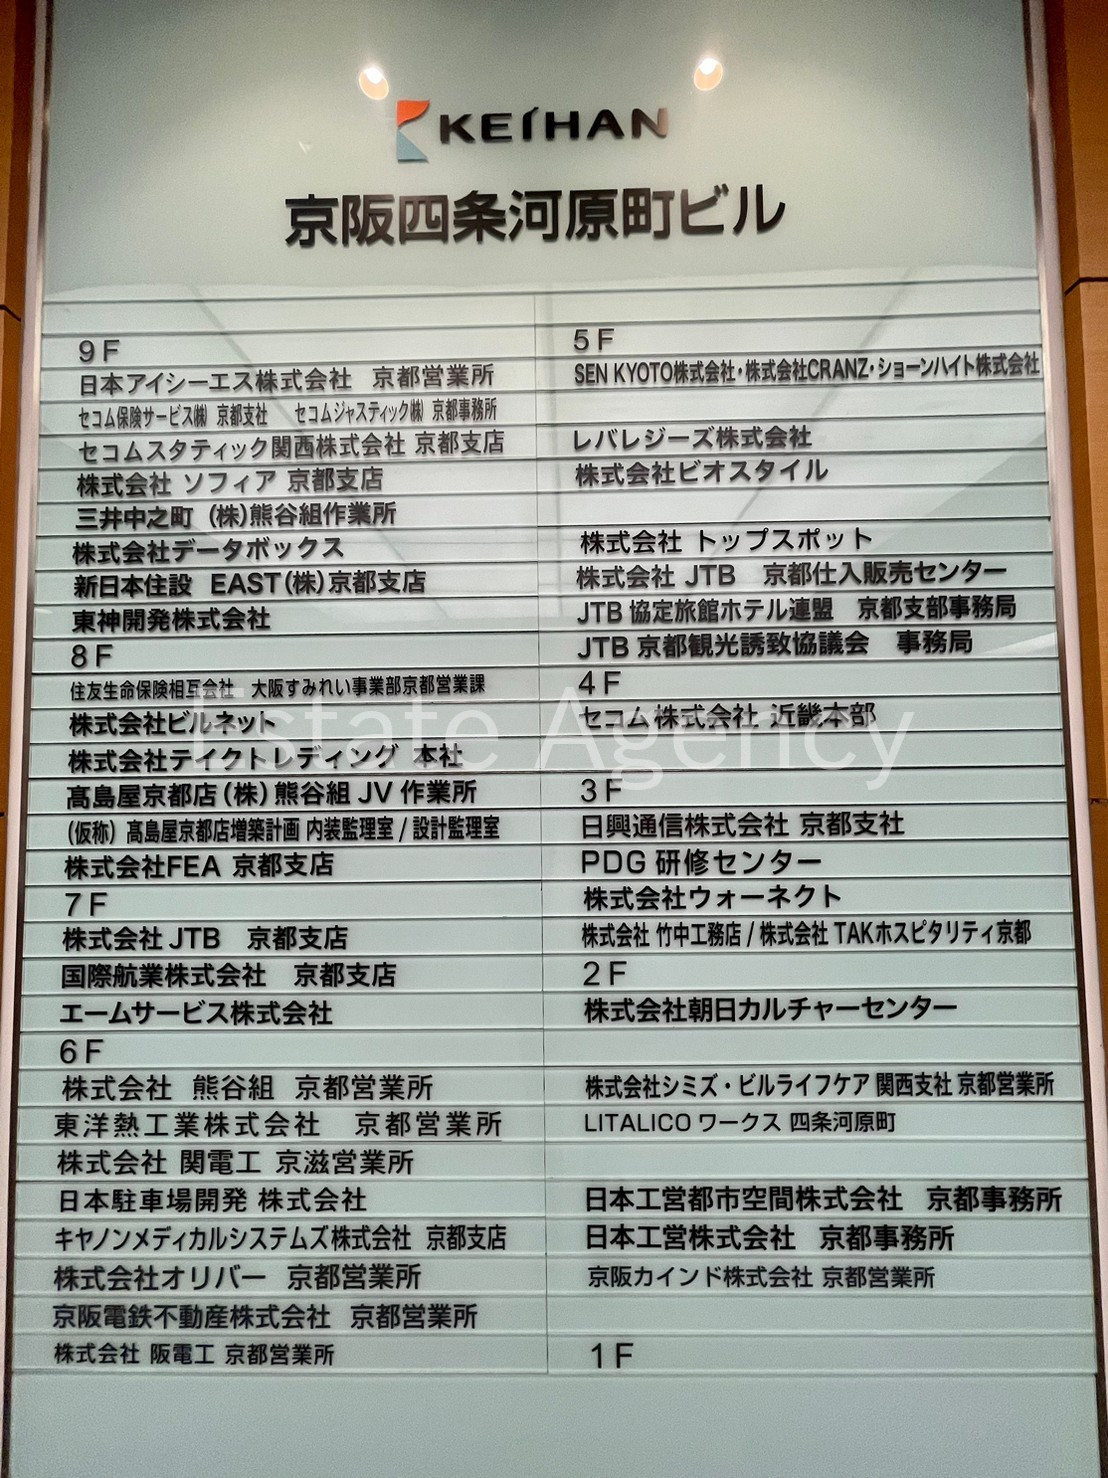 KEIHAN
京阪四条河原町ビル
9F
日本アイシーエス株式会社 京都営業所
セコム保険サービス㈱ 京都支社 セコムジャスティック㈱ 京都事務所
セコムスタティック関西株式会社 京都支店
株式会社 ソフィア 京都支店
三井中之町 (株)熊谷組作業所
株式会社データボックス
新日本住設 EAST(株)京都支店
東神開発株式会社
8F
住友生命保険相互会社 大阪すみれい事業部京都営業課
株式会社ビルネット
株式会社テイクトレディング 本社
髙島屋京都店(株)熊谷組 JV 作業所
(仮称) 髙島屋京都店増築計画 内装監理室 / 設計監理室
株式会社FEA 京都支店
7F
株式会社 JTB 京都支店
国際航業株式会社 京都支店
エームサービス株式会社
6F
株式会社 熊谷組 京都営業所
東洋熱工業株式会社 京都営業所
株式会社 関電工 京滋営業所
日本駐車場開発 株式会社
キヤノンメディカルシステムズ株式会社 京都支店
株式会社オリバー 京都営業所
京阪電鉄不動産株式会社 京都営業所
株式会社 阪電工 京都営業所
5F
SEN KYOTO株式会社・株式会社CRANZ・ショーンハイト株式会社
レバレジーズ株式会社
株式会社ビオスタイル
株式会社 トップスポット
株式会社 JTB 京都仕入販売センター
JTB 協定旅館ホテル連盟 京都支部事務局
JTB 京都観光誘致協議会 事務局
4F
セコム株式会社 近畿本部
3F
日興通信株式会社 京都支社
PDG 研修センター
株式会社ウォーネクト
株式会社 竹中工務店 / 株式会社 TAKホスピタリティ京都
2F
株式会社朝日カルチャーセンター
株式会社シミズ・ビルライフケア 関西支社 京都営業所
LITALICO ワークス 四条河原町
日本工営都市空間株式会社 京都事務所
日本工営株式会社 京都事務所
京阪カインド株式会社 京都営業所
1F
Estate Agency